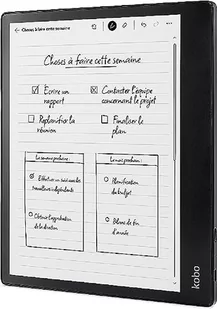 Choses à faire cette semaine
Choses à faire cette semaine
Écrire un
rapport
Contacter l'équipe
concernant le projet
Replanifier la
réunion
Finaliser le
plan
La semaine prochaine :
Effectuer un suivi avec les
travailleurs indépendants
Obtenir l'approbation
de la direction
Le mois prochain :
Planification
du budget
Bilans de fin
d'année
kobo